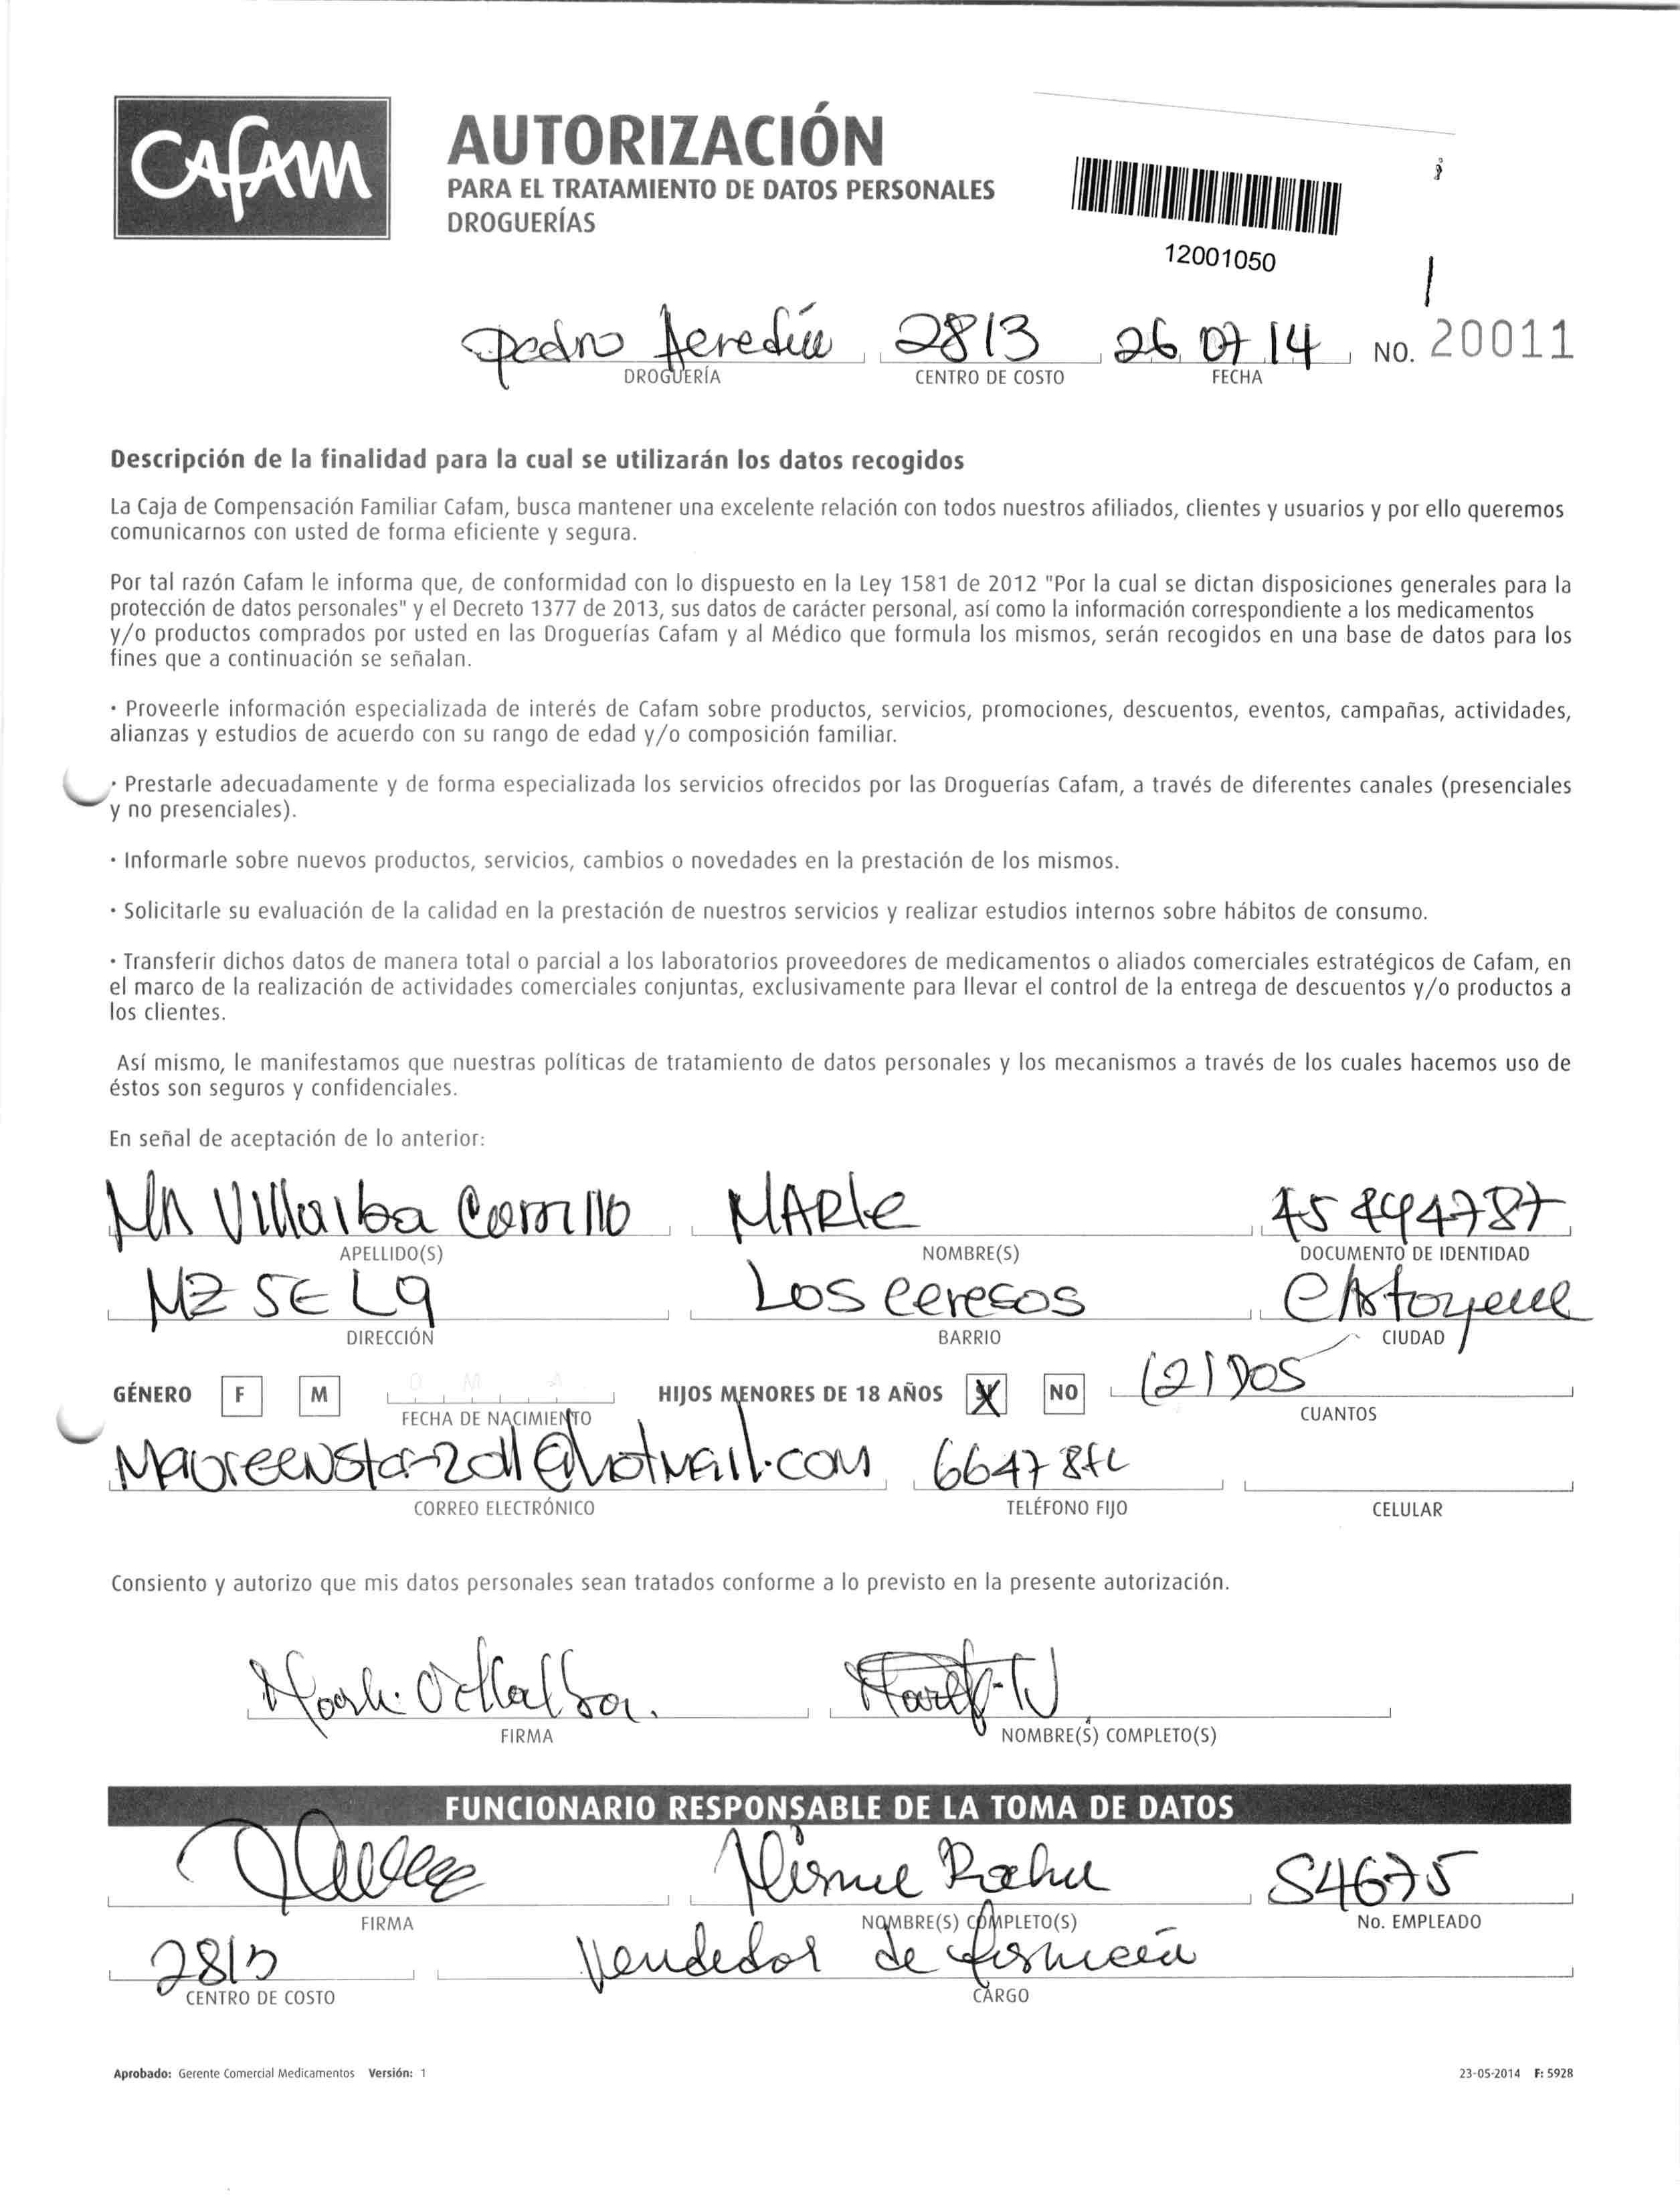 CAFAM
AUTORIZACIÓN
PARA EL TRATAMIENTO DE DATOS PERSONALES
DROGUERÍAS
12001050
Pedro Heredia 2813 26 07 14 NO. 20011
DROGUERÍA CENTRO DE COSTO FECHA
Descripción de la finalidad para la cual se utilizarán los datos recogidos
La Caja de Compensación Familiar Cafam, busca mantener una excelente relación con todos nuestros afiliados, clientes y usuarios y por ello queremos
comunicarnos con usted de forma eficiente y segura.
Por tal razón Cafam le informa que, de conformidad con lo dispuesto en la Ley 1581 de 2012 "Por la cual se dictan disposiciones generales para la
protección de datos personales" y el Decreto 1377 de 2013, sus datos de carácter personal, así como la información correspondiente a los medicamentos
y/o productos comprados por usted en las Droguerías Cafam y al Médico que formula los mismos, serán recogidos en una base de datos para los
fines que a continuación se señalan.
· Proveerle información especializada de interés de Cafam sobre productos, servicios, promociones, descuentos, eventos, campañas, actividades,
alianzas y estudios de acuerdo con su rango de edad y/o composición familiar.
· Prestarle adecuadamente y de forma especializada los servicios ofrecidos por las Droguerías Cafam, a través de diferentes canales (presenciales
y no presenciales).
· Informarle sobre nuevos productos, servicios, cambios o novedades en la prestación de los mismos.
· Solicitarle su evaluación de la calidad en la prestación de nuestros servicios y realizar estudios internos sobre hábitos de consumo.
· Transferir dichos datos de manera total o parcial a los laboratorios proveedores de medicamentos o aliados comerciales estratégicos de Cafam, en
el marco de la realización de actividades comerciales conjuntas, exclusivamente para llevar el control de la entrega de descuentos y/o productos a
los clientes.
Así mismo, le manifestamos que nuestras políticas de tratamiento de datos personales y los mecanismos a través de los cuales hacemos uso de
éstos son seguros y confidenciales.
En señal de aceptación de lo anterior:
Villalba Carrillo
APELLIDO(S) NOMBRE(S) DOCUMENTO DE IDENTIDAD
MZ SE L9 Los ceresos
DIRECCIÓN BARRIO CIUDAD
GÉNERO F M D M A HIJOS MENORES DE 18 AÑOS NO (2) DOS
FECHA DE NACIMIENTO CUANTOS
CORREO ELECTRÓNICO TELÉFONO FIJO CELULAR
Consiento y autorizo que mis datos personales sean tratados conforme a lo previsto en la presente autorización.
Villalba
FIRMA NOMBRE(S) COMPLETO(S)
FUNCIONARIO RESPONSABLE DE LA TOMA DE DATOS
54675
FIRMA NOMBRE(S) COMPLETO(S) No. EMPLEADO
2813 Vendedor de farmacia
CENTRO DE COSTO CARGO
Aprobado: Gerente Comercial Medicamentos Versión: 1 23-05-2014 F: 5928